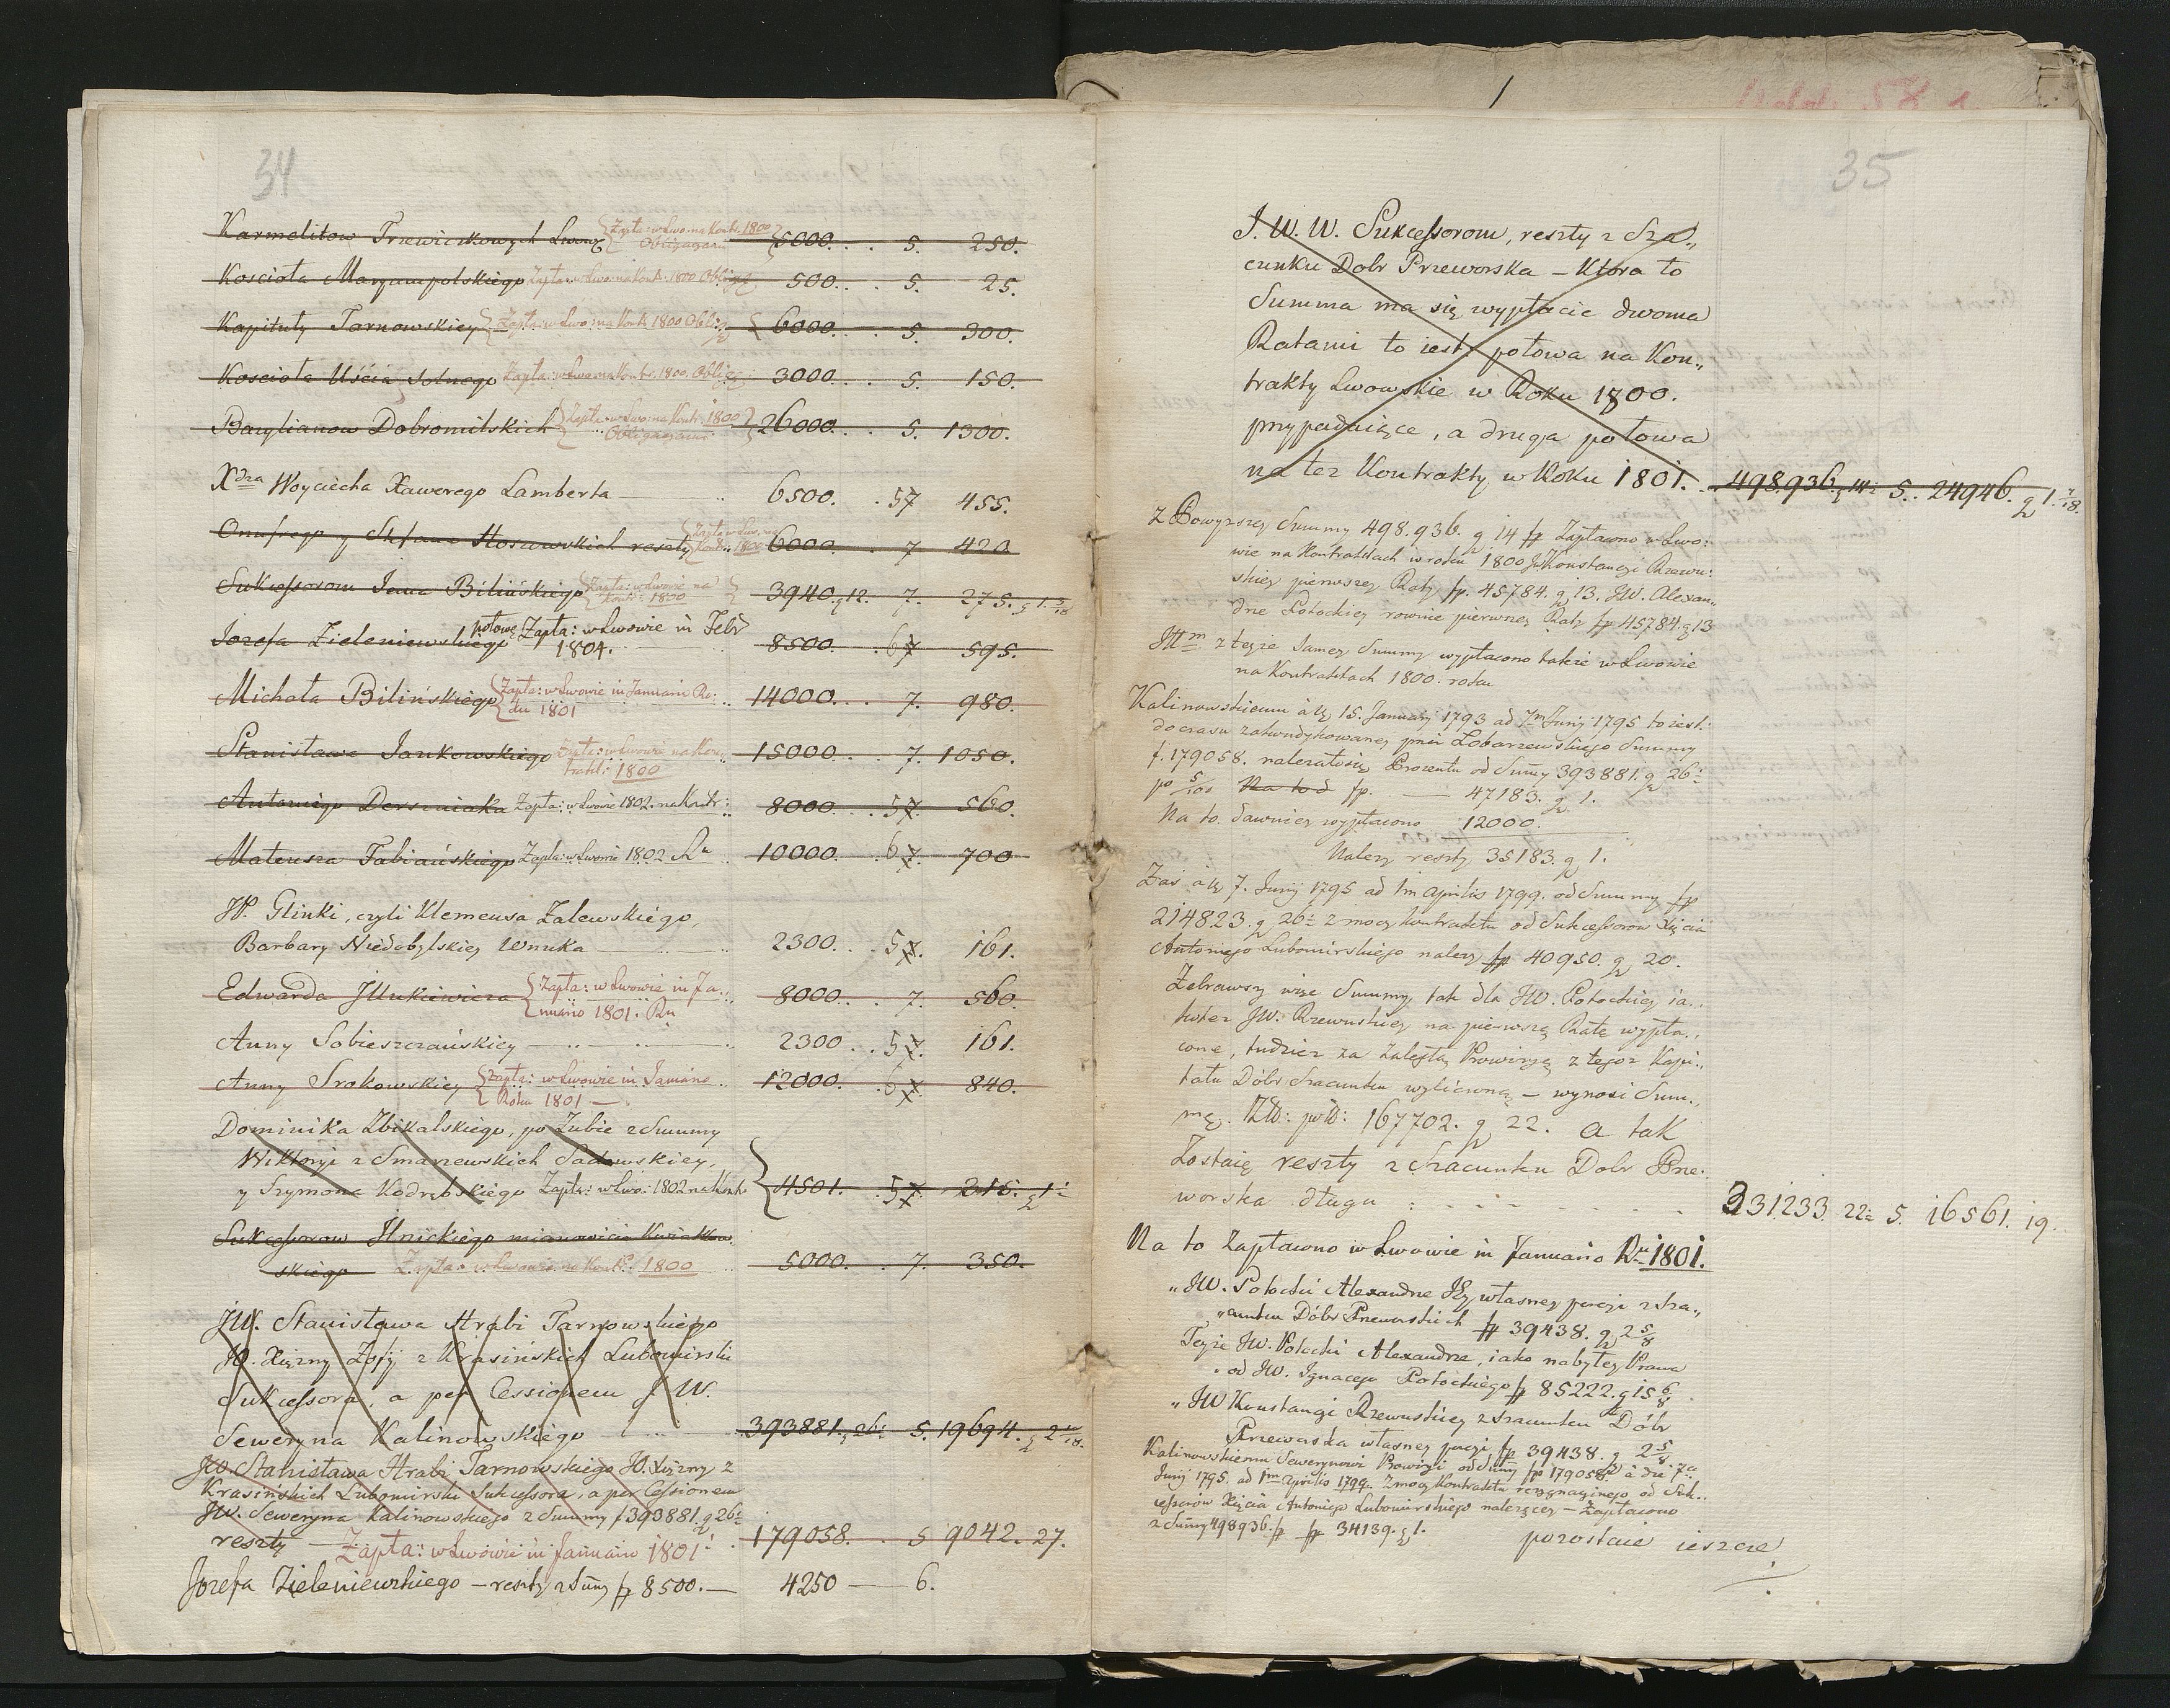 34
Karmelitow Trzewiczkowych Lwow: Zapła: w Lwo: na Kontr. 1800 Obligacyami 5000. . . 5. 250.
Koscioła Maryampolskiego Zapła: w Lwo: na Kont: 1800 Oblig 500. . . 5. 25.
Kapituły Tarnowskiey Zapła: w Lwo: na Kont: 1800 Oblig 6000. . . 5. 300.
Kosciola Uścia Solnego Zapła: w Lwo: na Kontr. 1800. Oblig 3000. . . 5. 150.
Bazylianow Dobromilskich Zapła: w Lwo: na Kontr: 1800 Obligacyami 26000. . . 5. 1300.
Xdza Woyciecha Xawerego Lamberta 6500. . 57 455.
Onufrego y Stefana Hoszowskich reszty Zapła w Lwo: na Kontr: 1800 6000. . . 7 420
Sukcessorom Jana Bilińskiego Zapła: w Lwowie na Kont: 1800 3940. g 12. 7. 275. g 1.
Jozefa Zieleniewskiego połowę Zapła: w Lwowie in Febr
1804. 8500. . 67 595.
Michała Bilińskiego Zapła: w Lwowie in Januario Ro:
ku 1801 14000. . . 7. 980.
Stanisława Jankowskiego Zapła: w Lwowie na Kon:
trakt: 1800 15000. . . 7. 1050.
Antoniego Derszniaka Zapła: w Lwowie 1802. na Kontr: 8000. . . 57. 560.
Mateusza Fabiańskiego Zapła: w Lwowie 1802 Ru 10000. . 67. 700
JP. Glinki, czyli Klemensa Zalewskiego,
Barbary Niedobylskiey Wnuka 2300. . . 57. 161.
Edwarda Zapła: w Lwowie in Ja:
nuario 1801. Ru 8000. . . 7. 560.
Anny Sobieszczańskiey 2300 . . . 57. 161.
Anny Srokowskiey Zapła: w Lwowie in Januario
Roku 1801 — 12000. . 67. 840.
Dominika Zbikalskiego, po Zubie z Summy
Wiktoryi z Smarzewskich Sadowskiey,
y Szymona Kodrębskiego Zapła: w Lwo: 1802 na Kontr 4501. . 57. 315. g 1
Sukcessorow Ilnickiego mianowicie Kwiatkow:
skiego Zapła: w Lwowie na Kont: 1800 5000. . 7. 350.
JW. Stanisława Hrabi Tarnowskiego
JO. Xiężny Zofij z Krasińskich Lubomirski
Sukcessora, a per Cessionem J W.
Seweryna Kalinowskiego 393881. g 26 5. 19694. g 2
JW. Stanisława Hrabi Tarnowskiego JO. Xiężny z
Krasińskich Lubomirski Sukcessora, a per Cessionem
JW. Seweryna Kalinowskiego z Summy f 393881. g 26
reszty — Zapła: w Lwowie in Januario 1801 179058. . . 5 9042. 27.
Jozefa Zieleniewskiego — reszty z Summy fp 8500. — 4250 — 6.
35
J. W. W. Sukcessorom, reszty z Sza„
cunku Dobr Przeworska — Ktora to
Summa ma się wypłacic dwoma
Ratami to iest: połowa na Kon„
trakty Lwowskie w Roku 1800.
przypadaiące, a druga połowa
na tez Kontrakty w Roku 1801. . 498.936. g 14 5. . 24946. g 1. 7/18.
Z Powyzszey Summy 498.936. g 14 fp Zapłacono w Lwo:
wie na Kontraktach w roku 1800 JW Konstancyi Rzewu:
skiey pierwszey Raty fp. 45784. g 13. JW. Alexan„
drze Potockiey rownie pierwszey Raty fp 45784. g 13
Itm z teyże samey Summy wypłacono także w Lwowie
na Kontraktach 1800. roku
Kalinowskiemu à 15. January 1793 ad 7m Junij 1795 to iest:
do czasu zakondykowaney przez Łobarzewskiego Summy
f. 179058. należałości Procentu od Summy 393881. g 26
po 5/100 Na to d fp. — 47183. g 1.
Na to dawniey wypłacono 12000.
Należy reszty 35183. g 1.
Zaś à 7. Junij 1795 ad 1m Aprilis 1799. od Summy fp
214823. g 26 z mocy kontraktu od Sukcessorow Xięcia
Antoniego Lubomirskiego należy fp 40950. g 20.
Zebrawszy więc Summy, tak dla JW. Potockiey ia„
koteż JW. Rzewuskiey na pierwszą Ratę wypła„
cone, tudzież za Zaległą Prowizyą z tegoż Kapi„
tału Dóbr Szacunku wyliczoną — wynosi Sum„
mę. 167702. g 22. a tak
Zostaię reszty z Szacunku Dobr Prze:
worska długu : 331233 22 5. 16561. 19.
Na to Zapłacono w Lwowie in Januario Ru 1801.
„JW. Potocki Alexandrze Jey własney porcyi z Sza„
„cunku Dóbr Przeworskich fp 39438. g 2 5/8
Teyże JW. Potocki Alexandrze, iako nabytey Prawa
„od JW. Ignacego Potockiego fp 85222. g 15 6/8
„JW Konstancyi Rzewuskiey z Szacunku Dóbr
Przeworska własney porcyi fp 39438. g 2 5/8.
Kalinowskiemu Sewerynowi Prowizyi od Summy fp 179058. à die 7a
Junij 1795. ad 1m Aprilis 1799. Zmocy Kontraktu rezygnacyinego od Suk„
cessorow Xięcia Antoniego Lubomirskiego należącey — Zapłacono
z Summy 498936. fp fp 34139. g 1.
pozostaie ieszcze